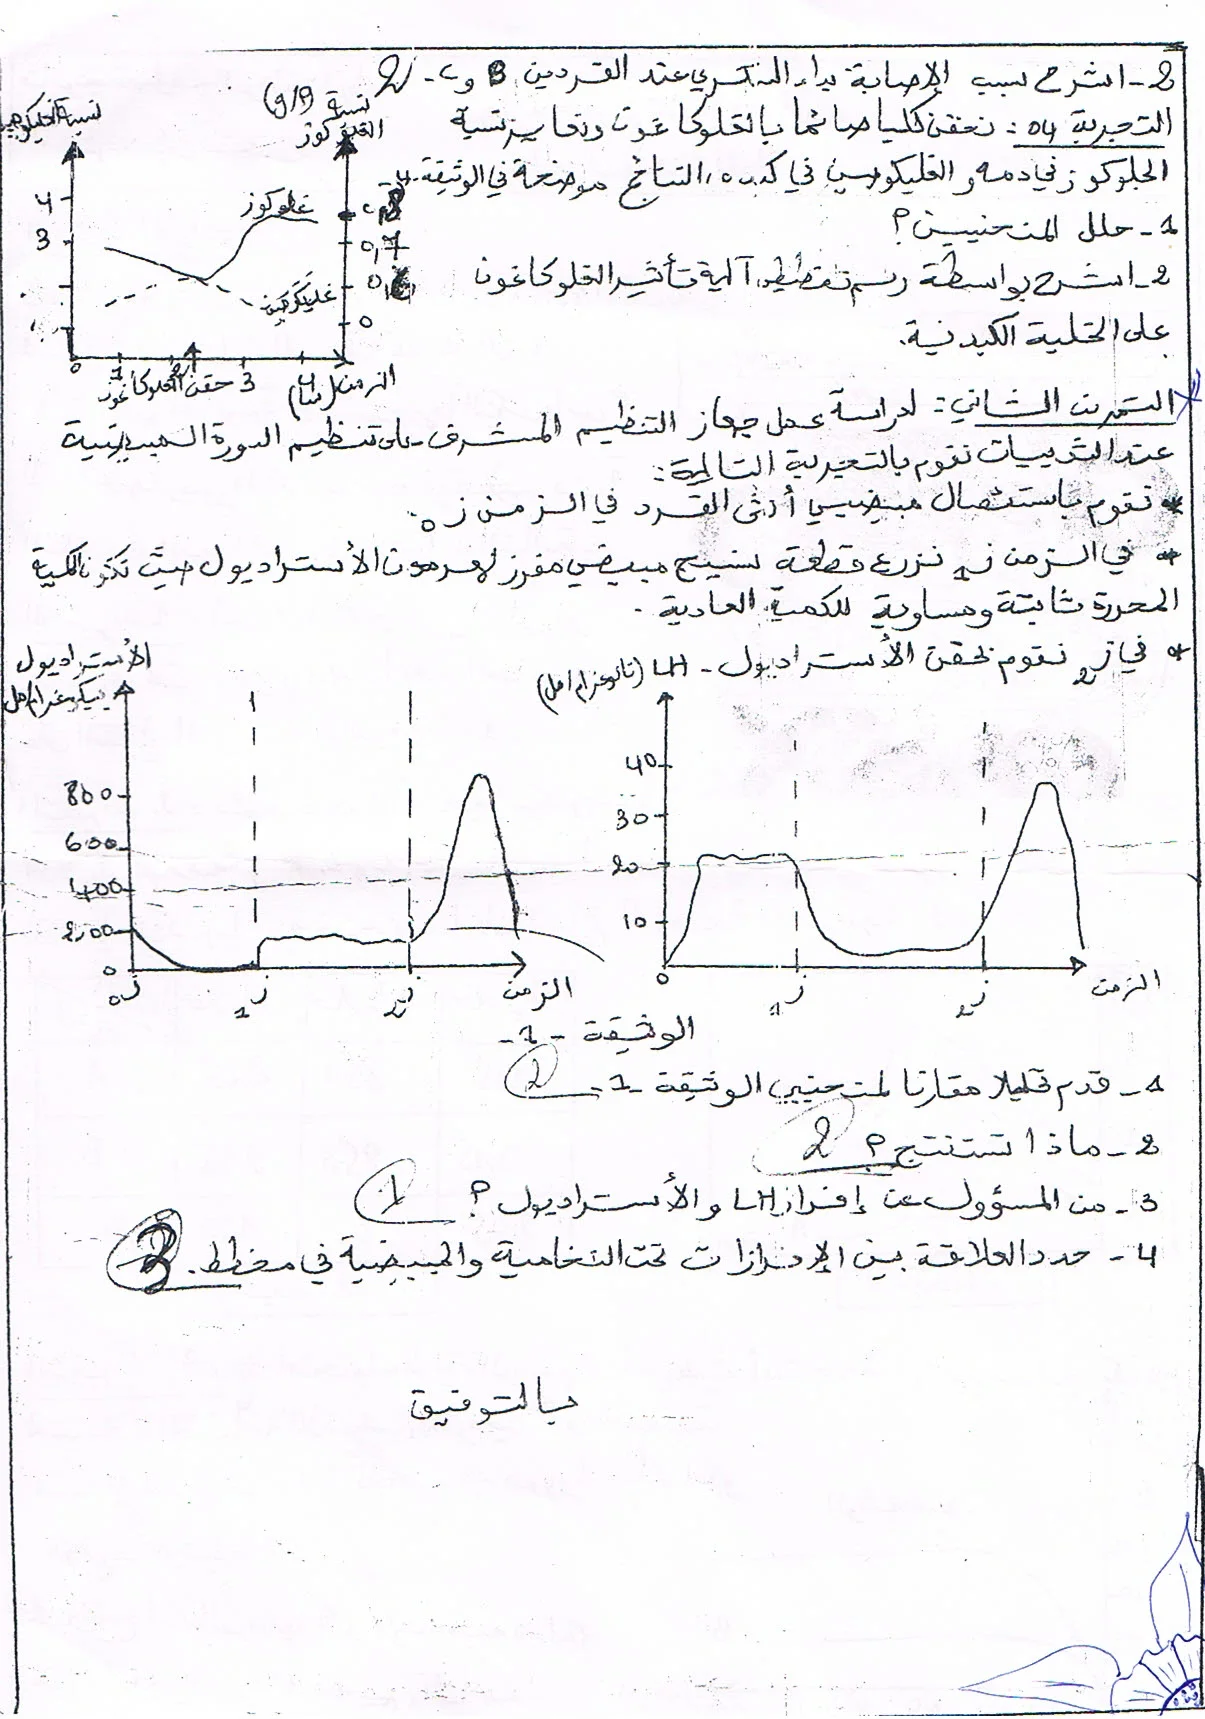 2- اشرح سبب الإصابة بداء السكري عند القردين B و C.
التجربة 04: نحقن كلبا صائما بالغلوكاغون ونعاير نسبة
الجلوكوز في دمه و الغليكوجين في كبده، النتائج موضحة في الوثيقة 4.
1- حلل المنحنيين؟
2- اشرح بواسطة رسم تخطيطي آلية تأثير الغلوكاغون
على الخلية الكبدية.
نسبة الغليكوجين
نسبة الغلوكوز (g/l)
4
3
0,8
0,7
0
غلوكوز
غليكوجين
0 1 2 3 4
حقن الغلوكاغون
الزمن (سا)
التمرين الثاني: لدراسة عمل جهاز التنظيم المشرف على تنظيم الدورة المبيضية
عند الثدييات نقوم بالتجربة التالية:
* نقوم باستئصال مبيضي أنثى القرد في الزمن ز0
* في الزمن ز1 نزرع قطعة نسيج مبيضي مفرز لهرمون الأستراديول حيث تكون الكمية
المحررة ثابتة ومساوية للكمية العادية.
* في ز2 نقوم بحقن الأستراديول.
الأستراديول
بيكوغرام/مل
800
600
400
200
0
ز0 ز1 ز2 الزمن
LH (نانوغرام/مل)
40
30
20
10
0 ز1 ز2 الزمن
الوثيقة -1-
1- قدم تحليلا مقارنا لمنحنيي الوثيقة -1- 2
2- ماذا تستنتج؟ 2
3- من المسؤول عن إفراز LH و الأستراديول؟ 1
4- حدد العلاقة بين الإفرازات تحت النخامية والمبيضية في مخطط. 3
بالتوفيق